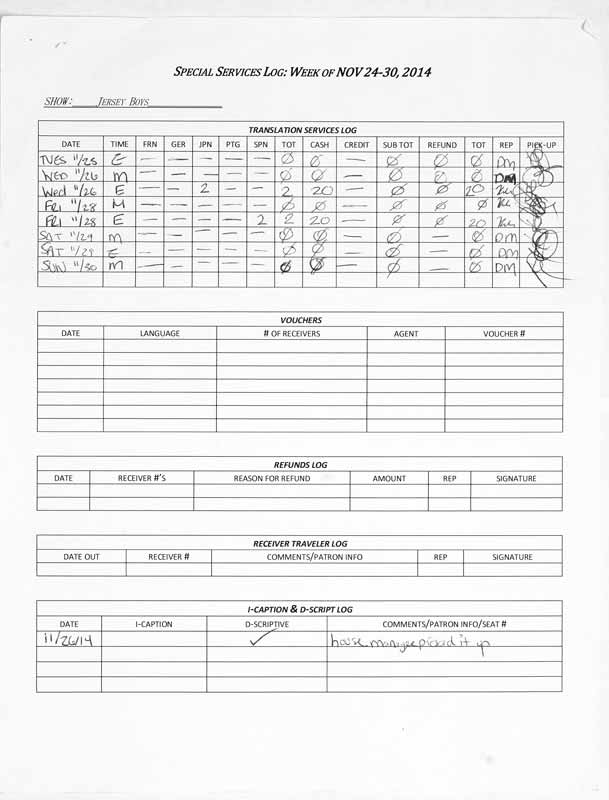 SPECIAL SERVICES LOG: WEEK OF NOV 24-30, 2014
SHOW: JERSEY BOYS
TRANSLATION SERVICES LOG
DATE TIME FRN GER JPN PTG SPN TOT CASH CREDIT SUB TOT REFUND TOT REP PICK-UP
TUES 11/25 E — — — — — Ø Ø — Ø Ø Ø DM
WED 11/26 M — — — — — Ø Ø — Ø Ø Ø DM
Wed 11/26 E — — 2 — — 2 20 — Ø Ø 20
FRI 11/28 M — — — — — Ø Ø — Ø Ø Ø
FRI 11/28 E — — — — 2 2 20 — Ø Ø 20
SAT 11/29 M — — — — — Ø Ø — Ø — Ø DM
SAT 11/29 E — — — — — Ø Ø — Ø — Ø DM
SUN 11/30 M — — — — — Ø Ø — Ø — Ø DM
VOUCHERS
DATE LANGUAGE # OF RECEIVERS AGENT VOUCHER #
REFUNDS LOG
DATE RECEIVER #'S REASON FOR REFUND AMOUNT REP SIGNATURE
RECEIVER TRAVELER LOG
DATE OUT RECEIVER # COMMENTS/PATRON INFO REP SIGNATURE
I-CAPTION & D-SCRIPT LOG
DATE I-CAPTION D-SCRIPTIVE COMMENTS/PATRON INFO/SEAT #
11/26/14 ✓ house it up